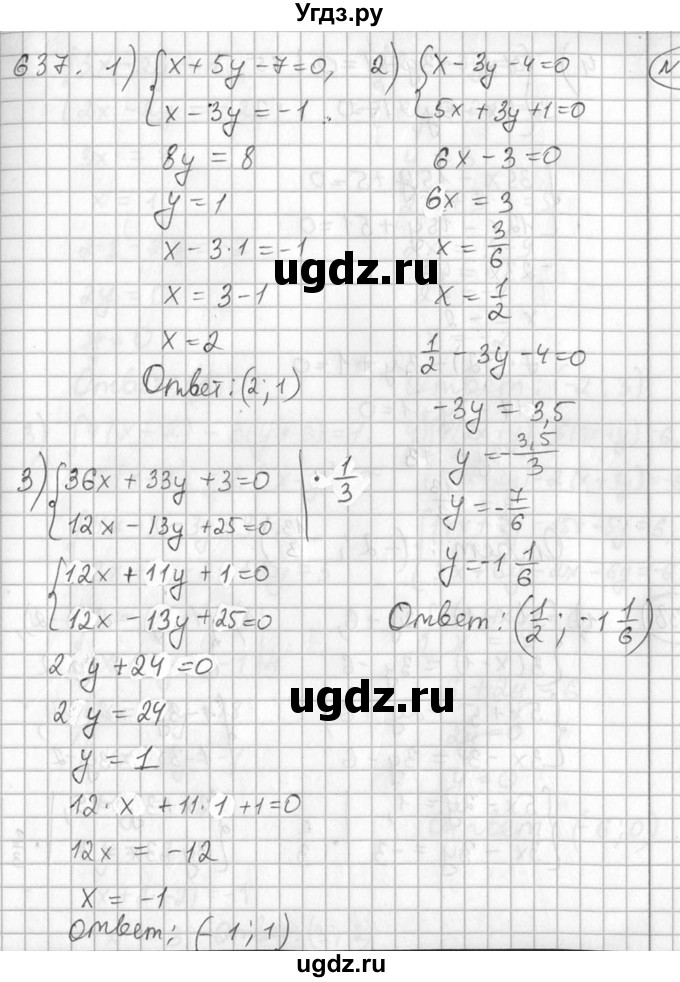 Угдз.ру
637. 1) { x + 5y - 7 = 0,
x - 3y = -1.
8y = 8
y = 1
x - 3·1 = -1
x = 3 - 1
x = 2
Ответ: (2; 1)
2) { x - 3y - 4 = 0
5x + 3y + 1 = 0
6x - 3 = 0
6x = 3
x = 3/6
x = 1/2
1/2 - 3y - 4 = 0
-3y = 3,5
y = - 3,5/3
y = - 7/6
y = -1 1/6
Ответ: (1/2; -1 1/6)
3) { 36x + 33y + 3 = 0 | · 1/3
12x - 13y + 25 = 0
{ 12x + 11y + 1 = 0
12x - 13y + 25 = 0
2 y + 24 = 0
2 y = 24
y = 1
12·x + 11·1 + 1 = 0
12x = -12
x = -1
Ответ: (-1; 1)
N
ugdz.ru
ugdz.ru
ugdz.ru